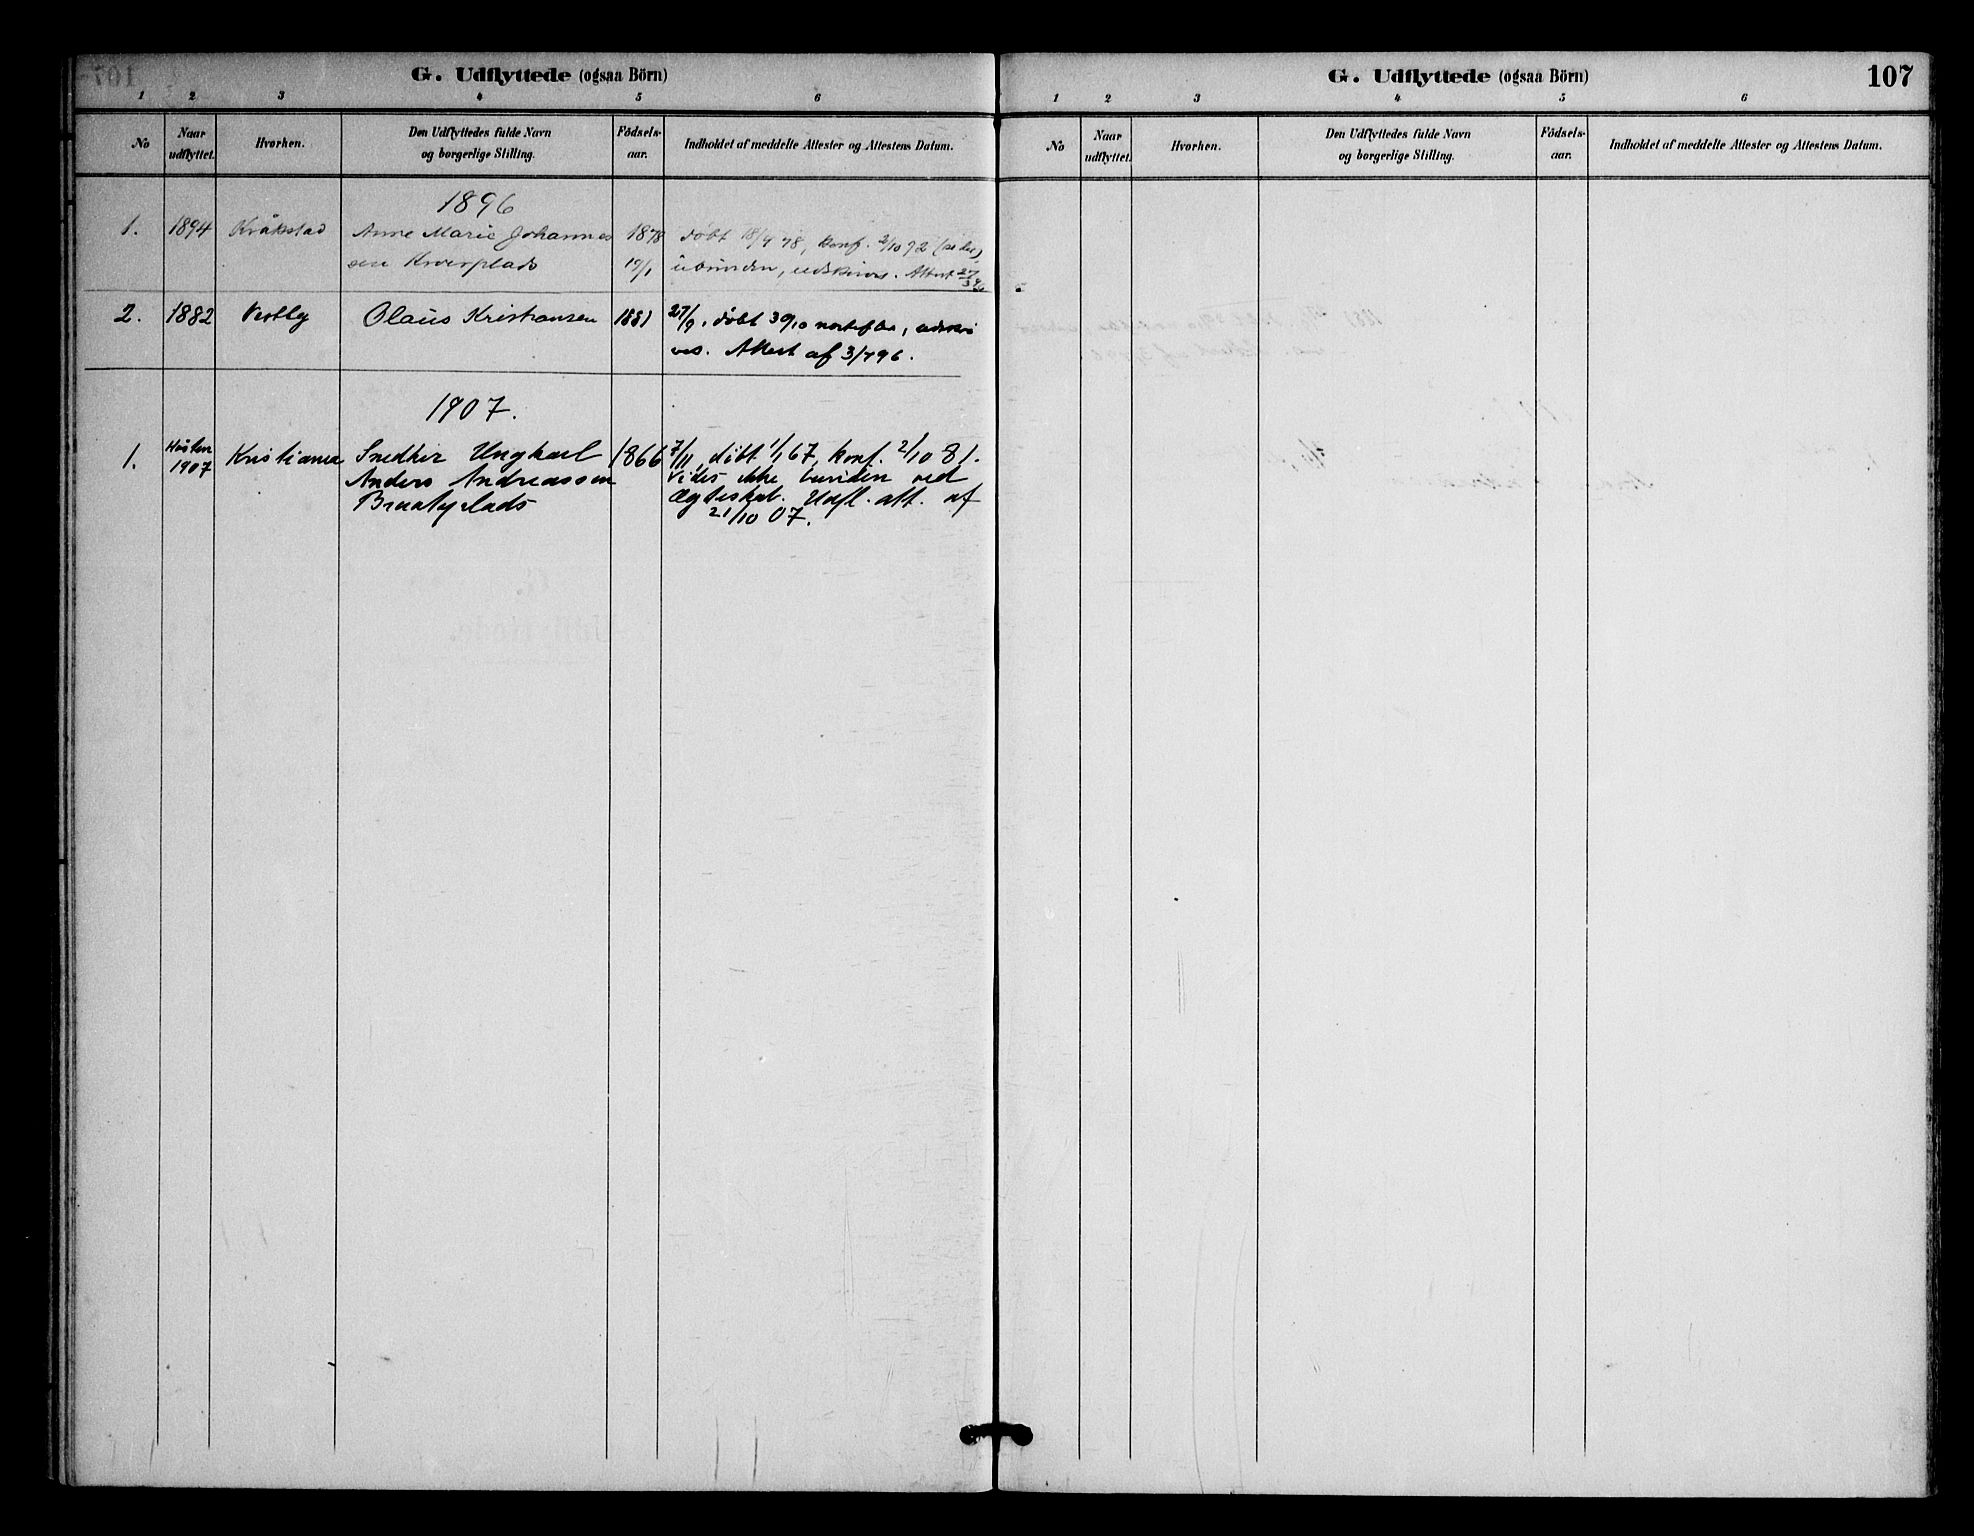 G. Udflyttede (ogsaa Börn)
1 2 3 4 5 6
No Naar udflyttet. Hvorhen. Den Udflyttedes fulde Navn og borgerlige Stilling. Födsels-aar. Indholdet af meddelte Attester og Attestens Datum.
1896
1. 1894 Kråkstad Anne Marie Johannes 1878 døbt 18/4 78, konf. 2/10 92
sen 19/1 ubunden, Attest 27/3 96
2. 1882 Vestby Olaus Kristiansen 1881 27/9, døbt 30/10 udskri
ves. Attest af 3/7 96.
1907.
1. Høsten 1907 Kristiania Snedker Ungkarl 1866 7/11, døbt 1/1 67, konf. 2/10 81.
Anders Andreassen Vides ikke bunden ved
Braateplads Ægteskab. Udfl. att. af
21/10 07.
G. Udflyttede (ogsaa Börn) 107
1 2 3 4 5 6
No Naar udflyttet. Hvorhen. Den Udflyttedes fulde Navn og borgerlige Stilling. Födsels-aar. Indholdet af meddelte Attester og Attestens Datum.